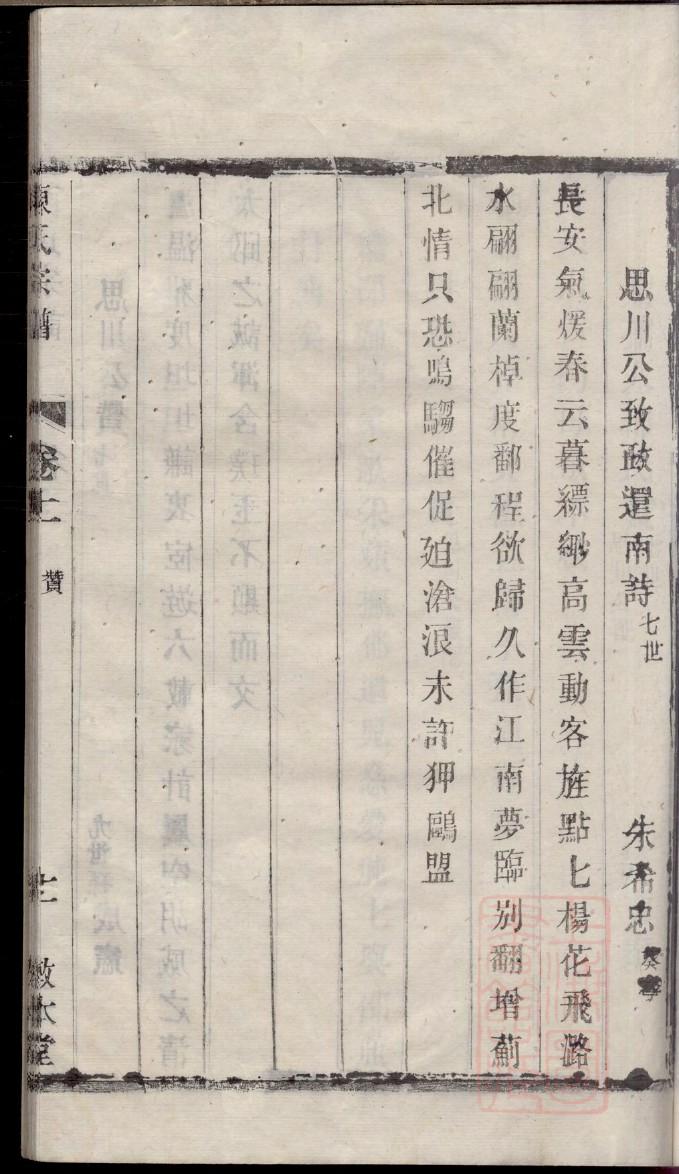 思川公致政還南詩 七世 朱希忠
長安氣煖春云暮縹緲高雲動客旌點匕楊花飛潞
水翩翩蘭棹度鄱程欲歸久作江南夢臨別翻增薊
北情只恐鳴騶催促廹滄浪未許狎鷗盟
陳氏宗譜 卷十 贊 十一 敦本堂